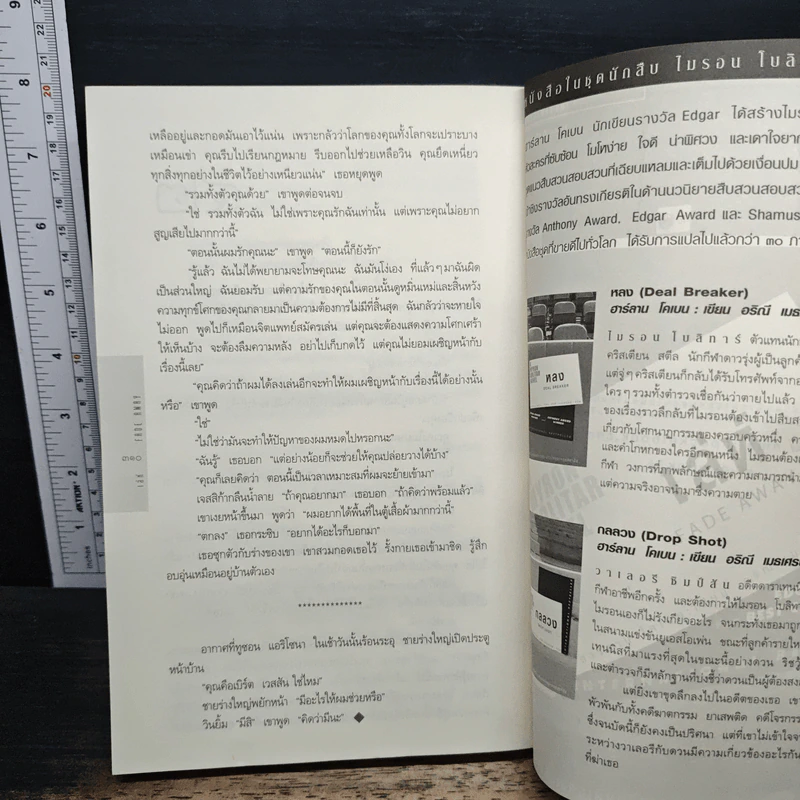 เหลืออยู่และกอดมันเอาไว้แน่น เพราะกลัวว่าโลกของคุณทั้งโลกจะเปราะบาง
เหมือนเช่า คุณรีบไปเรียนกฎหมาย รีบออกไปช่วยเหลือวิน คุณยึดเหนี่ยว
ทุกสิ่งทุกอย่างในชีวิตไว้อย่างเหนียวแน่น" เธอหยุดพูด
"รวมทั้งตัวคุณด้วย" เขาพูดต่อจนจบ
"ใช่ รวมทั้งตัวฉัน ไม่ใช่เพราะคุณรักฉันเท่านั้น แต่เพราะคุณไม่อยาก
สูญเสียไปมากกว่านี้"
"ตอนนั้นผมรักคุณนะ" เขาพูด "ตอนนี้ก็ยังรัก"
"รู้แล้ว ฉันไม่ได้พยายามจะโทษคุณนะ ฉันมันโง่เอง ที่แล้วๆ มาฉันผิด
เป็นส่วนใหญ่ ฉันยอมรับ แต่ความรักของคุณในตอนนั้นดูหมิ่นเหม่และสิ้นหวัง
ความทุกข์โศกของคุณกลายมาเป็นความต้องการไม่มีที่สิ้นสุด ฉันกลัวว่าจะหายใจ
ไม่ออก พูดไปก็เหมือนจิตแพทย์สมัครเล่น แต่คุณจะต้องแสดงความโศกเศร้า
ให้เห็นบ้าง จะต้องลืมความหลัง อย่าไปเก็บกดไว้ แต่คุณไม่ยอมเผชิญหน้ากับ
เรื่องนี้เลย"
"คุณคิดว่าถ้าผมได้ลงเล่นอีกจะทำให้ผมเผชิญหน้ากับเรื่องนี้ได้อย่างนั้น
หรือ" เขาพูด
"ใช่"
"ไม่ใช่ว่ามันจะทำให้ปัญหาของผมหมดไปหรอกนะ"
"ฉันรู้" เธอบอก "แต่อย่างน้อยก็จะช่วยให้คุณปล่อยวางได้บ้าง"
"คุณก็เลยคิดว่า ตอนนี้เป็นเวลาเหมาะสมที่ผมจะย้ายเข้ามา"
เจสสิก้ากลืนน้ำลาย "ถ้าคุณอยากมา" เธอบอก "ถ้าคิดว่าพร้อมแล้ว"
เขาเงยหน้าขึ้นมา พูดว่า "ผมอยากได้พื้นที่ในตู้เสื้อผ้ามากกว่านี้"
"ตกลง" เธอกระซิบ "อยากได้อะไรก็บอกมา"
เธอซุกตัวกับร่างของเขา เขาสวมกอดเธอไว้ รั้งกายเธอเข้ามาชิด รู้สึก
อบอุ่นเหมือนอยู่บ้านตัวเอง
**************
อากาศที่ทูซอน แอริโซนา ในเช้าวันนั้นร้อนระอุ ชายร่างใหญ่เปิดประตู
หน้าบ้าน
"คุณคือเบิร์ต เวสสัน ใช่ไหม"
ชายร่างใหญ่พยักหน้า "มีอะไรให้ผมช่วยหรือ"
วินยิ้ม "มีสิ" เขาพูด "คิดว่ามีนะ" ◆
๓๑๐
FADE AWAY
หนังสือในชุดนักสืบ ไมรอน โบลิ
ฮาร์ลาน โคเบน นักเขียนรางวัล Edgar ได้สร้างไมร
ตัวละครที่ซับซ้อน โมโหง่าย ใจดี น่าพิศวง และเดาใจยาก
แนวสืบสวนสอบสวนที่เฉียบแหลมและเต็มไปด้วยเงื่อนปม
ชิงรางวัลอันทรงเกียรติในด้านนวนิยายสืบสวนสอบสว
รางวัล Anthony Award, Edgar Award และ Shamus
หนังสือชุดที่ขายดีไปทั่วโลก ได้รับการแปลไปแล้วกว่า ๓๐ ภา
หลง (Deal Breaker)
ฮาร์ลาน โคเบน : เขียน อริณี เมธเ
ไมรอน โบลิทาร์ ตัวแทนนัก
คริสเตียน สตีล นักกีฬาดาวรุ่งผู้เป็นลูกค้
แต่จู่ๆ คริสเตียนก็กลับได้รับโทรศัพท์จากอ
ใครๆ รวมทั้งตำรวจเชื่อกันว่าตายไปแล้ว
ของเรื่องราวลึกลับที่ไมรอนต้องเข้าไปสืบส
เกี่ยวกับโศกนาฏกรรมของครอบครัวหนึ่ง
และคำโกหกของใครอีกคนหนึ่ง ไมรอนต้อง
กีฬา วงการที่ภาพลักษณ์และความสามารถนำ
แต่ความจริงอาจนำมาซึ่งความตาย
หลง
DEAL BREAKER
FADE AWAY
กลลวง (Drop Shot)
ฮาร์ลาน โคเบน : เขียน อริณี เมธเศร
วาเลอรี ซิมป์สัน อดีตดาราเทนนิ
กีฬาอาชีพอีกครั้ง และต้องการให้ไมรอน โบลิทา
ไมรอนเองก็ไม่รังเกียจอะไร จนกระทั่งเธอมาถูก
ในสนามแข่งขันยูเอสโอเพ่น ขณะที่ลูกค้ารายให
เทนนิสที่มาแรงที่สุดในขณะนี้อย่างดวน ริชวู้
และตำรวจก็มีหลักฐานที่บ่งชี้ว่าดวนเป็นผู้ต้องสง
แต่ยิ่งเขาขุดลึกลงไปในอดีตของเธอ เขา
พัวพันกับทั้งคดีฆาตกรรม ยาเสพติด คดีโจรกรร
ซึ่งจนบัดนี้ก็ยังคงเป็นปริศนา แต่ที่เขาไม่เข้าใจจ
ระหว่างวาเลอรีกับดวนมีความเกี่ยวข้องอะไรกัน
ที่ฆ่าเธอ
กลลวง